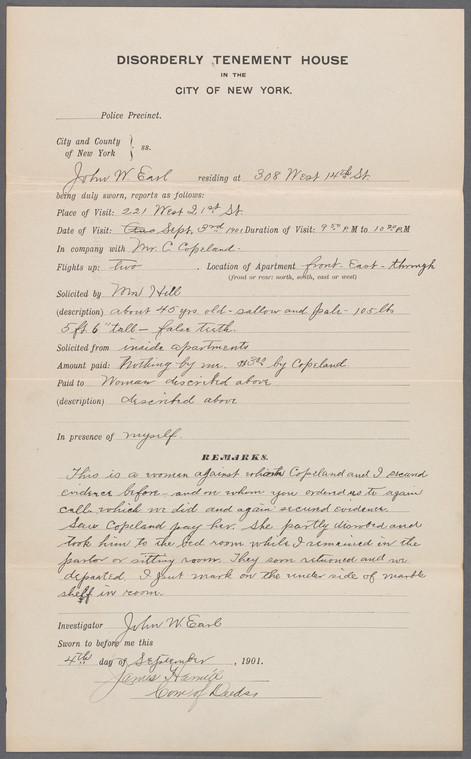 DISORDERLY TENEMENT HOUSE
IN THE
CITY OF NEW YORK.
Police Precinct.
City and County
of New York } ss.
John W. Earl residing at 308 West 14th St.
being duly sworn, reports as follows:
Place of Visit: 221 West 21st St.
Date of Visit: Sept. 3rd 1901 Duration of Visit: 9 P.M to 10 P.M
In company with Mr. C. Copeland.
Flights up: Two . Location of Apartment front-East-through
(front or rear: north, south, east or west)
Solicited by Mrs Hill
(description) about 45 yrs old-sallow and pale-105 lbs
5 ft. 6" tall-false teeth.
Solicited from inside apartments
Amount paid: Nothing by me. by Copeland
Paid to Woman described above
(description) described above
In presence of myself.
REMARKS.
This is a woman against whom Copeland and I secured
evidence before-and on whom you ordered us to again
call, which we did and again secured evidence.
Saw Copeland pay her. She partly disrobed and
took him to the bed room while I remained in the
parlor or sitting room. They soon returned and we
departed. I put mark on the under side of marble
shelf in room.
Investigator John W. Earl
Sworn to before me this
4th day of September , 1901.
James
Com of Deeds